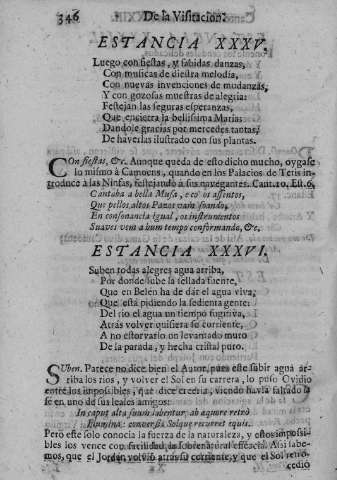 346 De la Visitacion:
ESTANCIA XXXV.
Luego con fiestas, y sabidas danzas,
Con musicas de diestra melodia,
Con nuevas invenciones de mudanzas,
Y con gozosas muestras de alegria:
Festejan las seguras esperanzas,
Que encierra la bellissima Maria;
Dandole gracias por mercedes tantas,
De haverlas ilustrado con sus plantas.
Con fiestas, &c. Aunque queda de esto dicho mucho, oygase
lo mismo à Camoens, quando en los Palacios de Tetis in-
troduce à las Ninfas, festejando à sus navegantes. Cant. 10. Est. 6.
Cantaba a bella Musa, e co os assentos,
Que pellos altos Pazos vam soando,
En consonancia igual, os instrumentos
Suaves vem à hum tempo conformando, &c.
ESTANCIA XXXVI.
Suben todas alegres agua arriba,
Por donde sube la sellada fuente,
Que en Belèn ha de dàr el agua viva,
Que està pidiendo la sedienta gente:
Del rio el agua un tiempo fugitiva,
Atràs volver quisiera su corriente,
A no estorvarlo un levantado muro
De la parada, y hecha cristal puro.
SUben. Parece no dice bien el Autor, pues este subir agua ar-
riba los rios, y volver el Sol en su carrera, lo puso Ovidio
entre los impossibles, que dice creeria, viendo havia faltado la
fe en uno de sus leales amigos:
In caput alta suum labentur ab aquore retrò
Flumina: conversis Solque recurret equis.
Però este solo conocia la fuerza de la naturaleza, y estos impossi-
bles los vence con facilidad la sobrenatural eficacia. Assi sabe-
mos, que el Jordàn volviò atràs su corriente, y que el Sol retro-
cedio